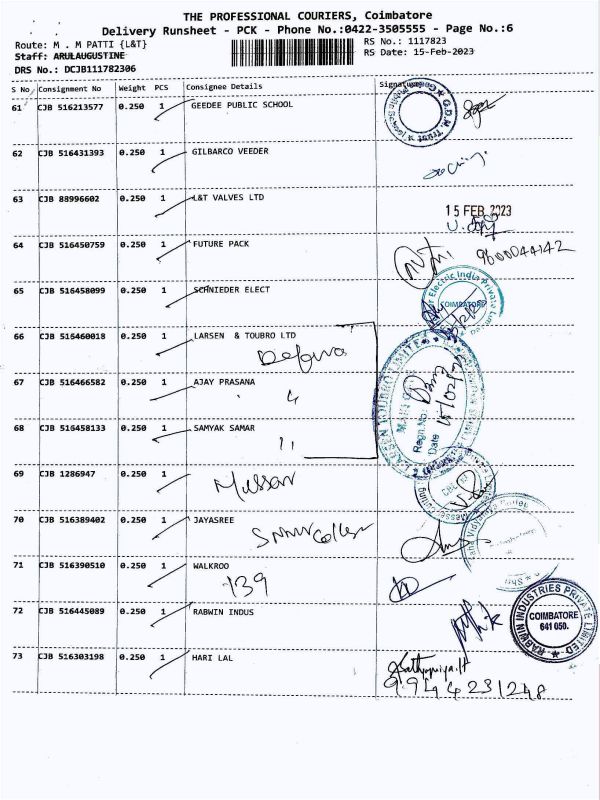 THE PROFESSIONAL COURIERS, Coimbatore
Delivery Runsheet - PCK - Phone No.:0422-3505555 - Page No.:6
Route: M . M PATTI {L&T}
RS No.: 1117823
Staff: ARULAUGUSTINE
RS Date: 15-Feb-2023
DRS No.: DCJB111782306
S No Consignment No Weight PCS Consignee Details Signature
61 CJB 516213577 0.250 1 GEEDEE PUBLIC SCHOOL
62 CJB 516431393 0.250 1 GILBARCO VEEDER
63 CJB 88996602 0.250 1 L&T VALVES LTD
15 FEB 2023
64 CJB 516450759 0.250 1 FUTURE PACK
9600044142
65 CJB 516458099 0.250 1 SCHNIEDER ELECT
Electric India Private
COIMBATORE
66 CJB 516460018 0.250 1 LARSEN & TOUBRO LTD
67 CJB 516466582 0.250 1 AJAY PRASANA
Regn.No:
Date 15/02/23
68 CJB 516458133 0.250 1 SAMYAK SAMAR
11
69 CJB 1286947 0.250 1
70 CJB 516389402 0.250 1 JAYASREE
College
71 CJB 516390510 0.250 1 WALKROO
139
72 CJB 516445089 0.250 1 RABWIN INDUS
RABWIN INDUSTRIES PRIVATE LIMITED
COIMBATORE
641 050.
73 CJB 516303198 0.250 1 HARI LAL
9944231248